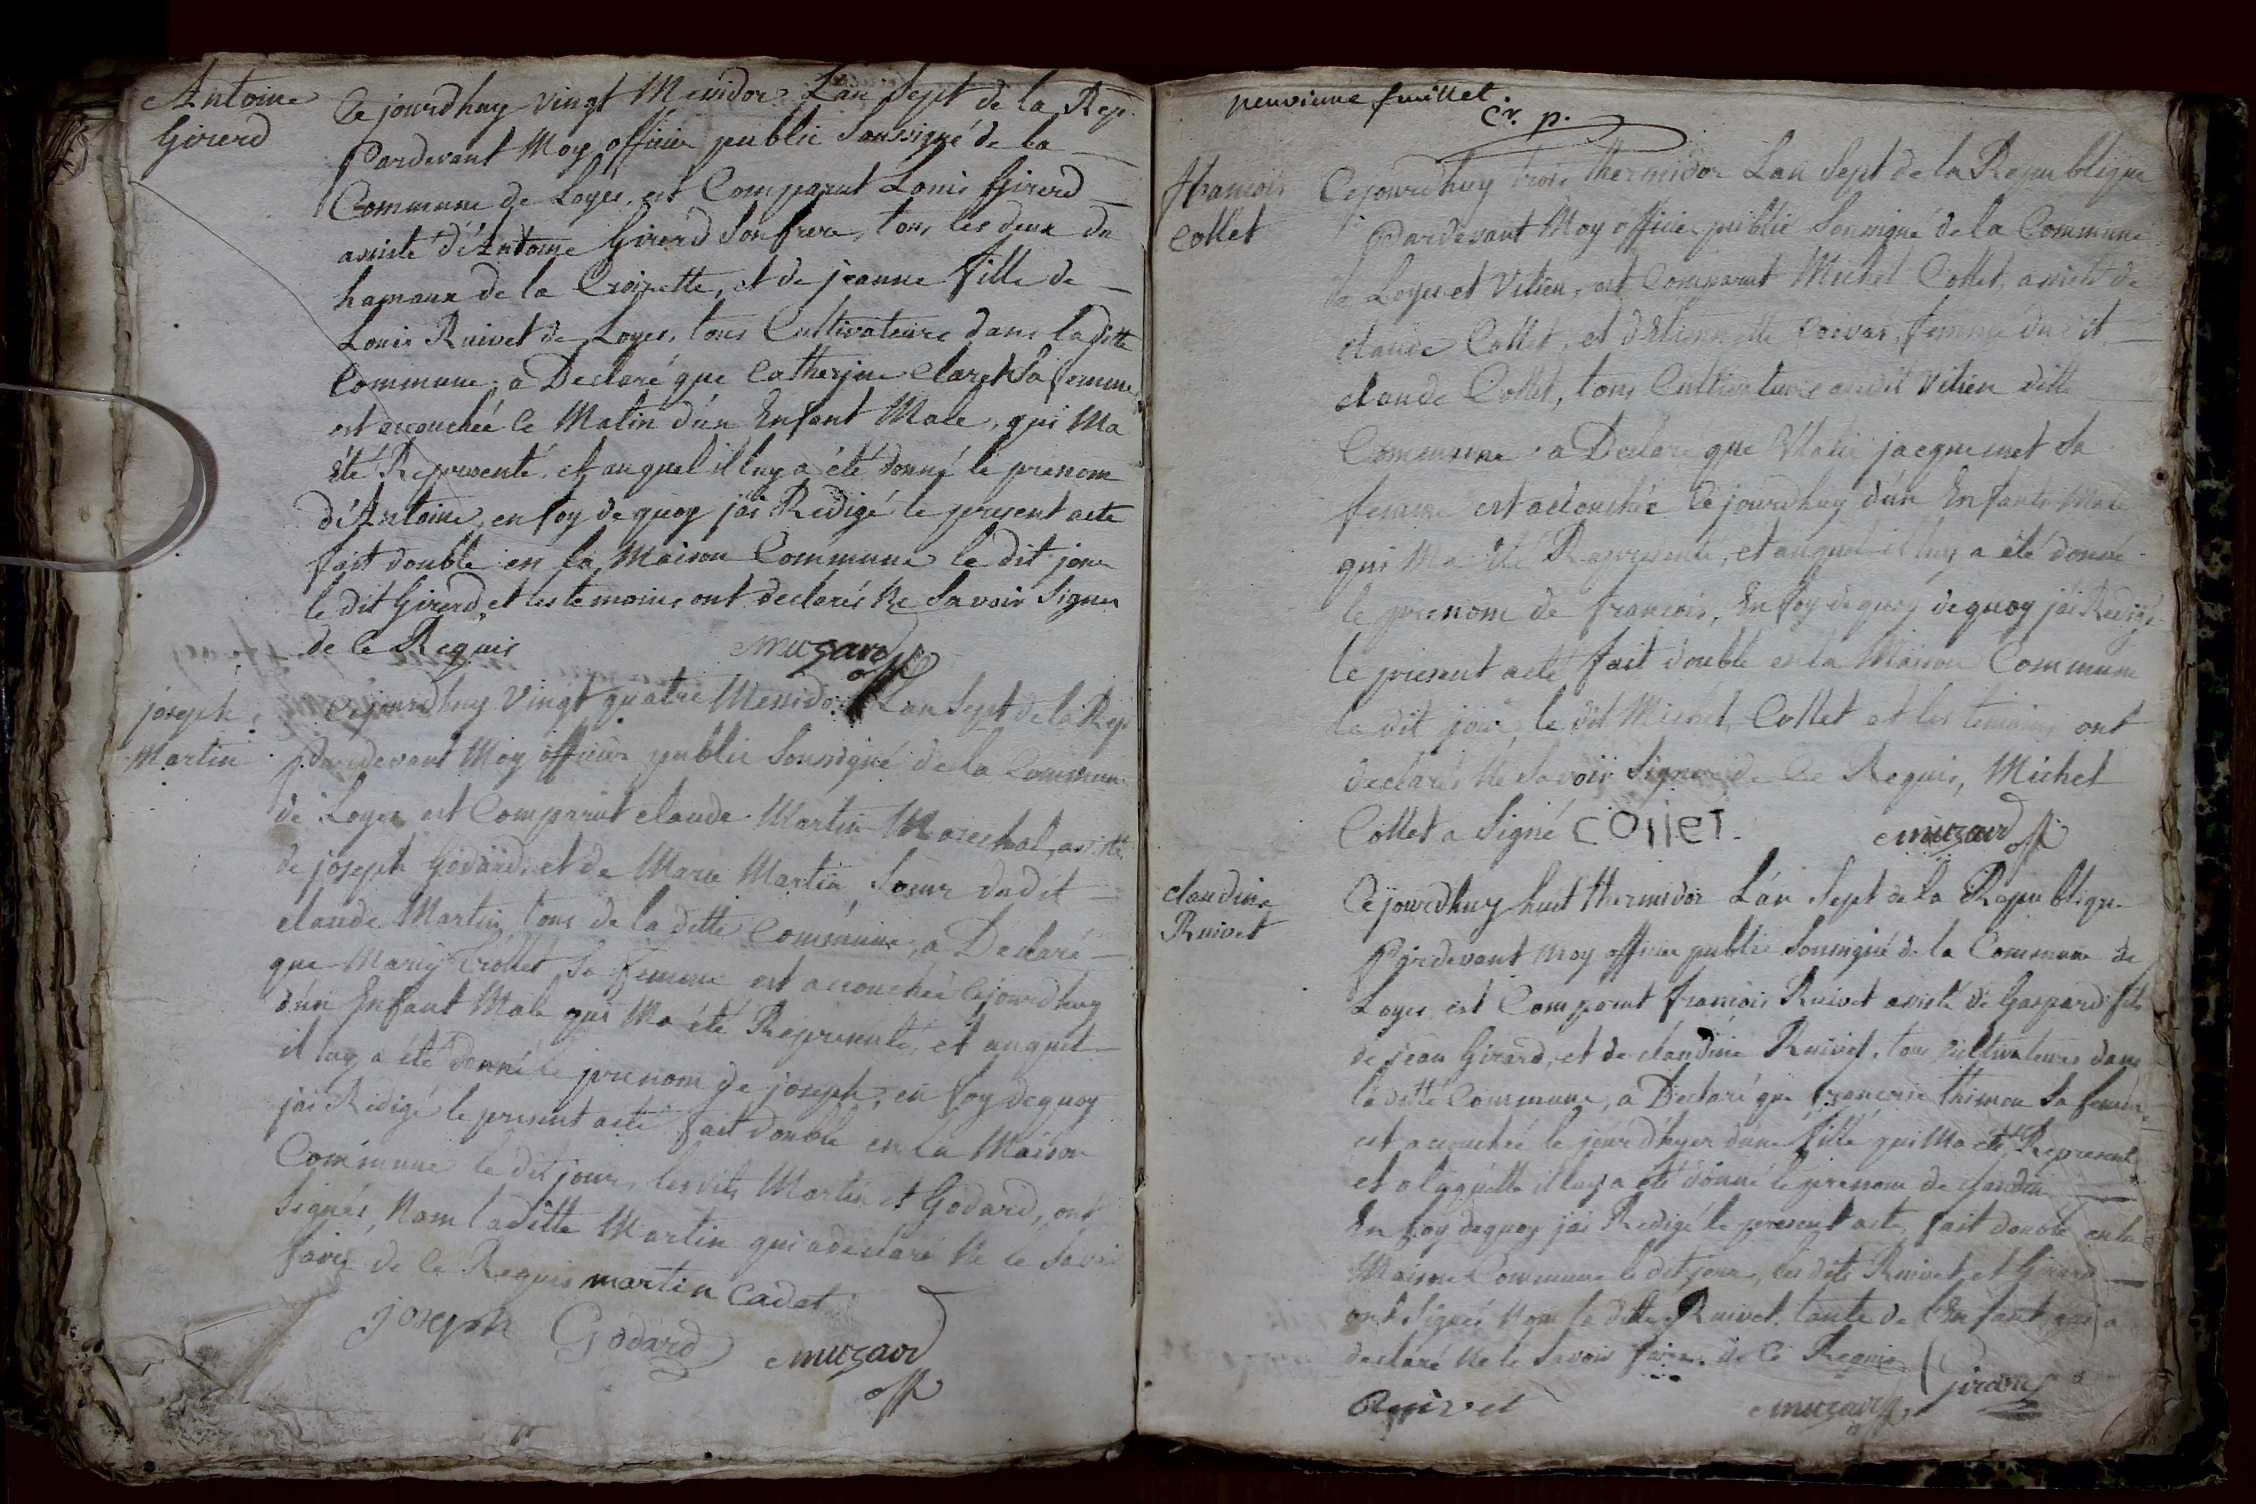 Antoine
Girerd
Cejourdhuy vingt Messidor L'an Sept de la Rep.
Pardevant Moy officier public Soussigné de la
Commune de Loyes, est Comparut Louis Girerd
assisté d'Antoine Girerd Son frere, tous les deux du
hamaux de la Croizette, et de jeanne fille de
Louis Ruivet de Loyes, tous Cultivateurs dans la ditte
Commune, a Declaré que Catherine Claret Sa femme
est accouchée Ce Matin d'un Enfant Male, qui Ma
été Representé, et auquel il luy a été donné le prenom
d'Antoine, en foy de quoy jai Redigé le present acte
fait double en la Maison Commune le dit jour
le dit Girerd et les temoins ont declarés Ne Savoir Signer
de Ce Requis
muzard
off
joseph
Martin
Cejourdhuy Vingt quatre Messidor L'an Sept de la Rep
pardevant Moy officier public Soussigné de la Commune
de Loyes est Comparut claude Martin Marechal, assisté
de joseph Godard, et de Marie Martin, Soeur dudit
claude Martin tous de la ditte Commune, a Declaré
que Marie Sa femme est accouchée Cejourdhuy
d'un Enfant Male qui Ma été Representé, et auquel
il luy a été donné le prenom de joseph, en foy de quoy
jai Redigé le present acte fait double en la Maison
Commune le dit jour, les dits Martin et Godard, ont
Signés, Nom laditte Martin qui a declaré Ne le Savoir
faire de Ce Requis martin cadet
joseph Godard
muzard
off
neuvieme feuillet
francois
Collet
Cejourdhuy trois thermidor L'an Sept de la Republique
Pardevant Moy officier public Soussigné de la Commune
de Loyes et Vilieu, est Comparut Michel Collet, assisté de
claude Collet, et d'Etiennette femme du dit
claude Collet, tous Cultivateurs audit Vilieu ditte
Commune a Declaré que Marie jacquemet Sa
femme est accouchée Cejourdhuy d'un Enfant Male
qui Ma été Representé, et auquel il luy a été donné
le prenom de francois, En foy de quoy de quoy jai Redigé
le present acte fait double en la Maison Commune
le dit jour, le dit Michel Collet et les temoins ont
declarés Ne Savoir Signer de Ce Requis, Michel
Collet a Signé COllET
muzard
off
claudine
Ruivet
Cejourdhuy huit thermidor L'an Sept de la Republique
Pardevant Moy officier public Soussigné de la Commune de
Loyes est Comparut francois Ruivet assisté de Gaspard fils
de jean Girard, et de claudine Ruivet, tous Cultivateurs dans
la ditte Commune, a Declaré que francoise Sa femme
est accouchée le jour d'hyer d'une fille qui Ma été Representé
et a laquelle il luy a été donné le prenom de claudine
En foy dequoy jai Redigé le present acte, fait double en la
Maison Commune le dit jour, les dits Ruivet et Girard
ont Signés Nom la ditte Ruivet, tante de l'Enfant, qui a
declaré Ne le Savoir faire. de Ce Requis
Ruivet
muzard
off
girard